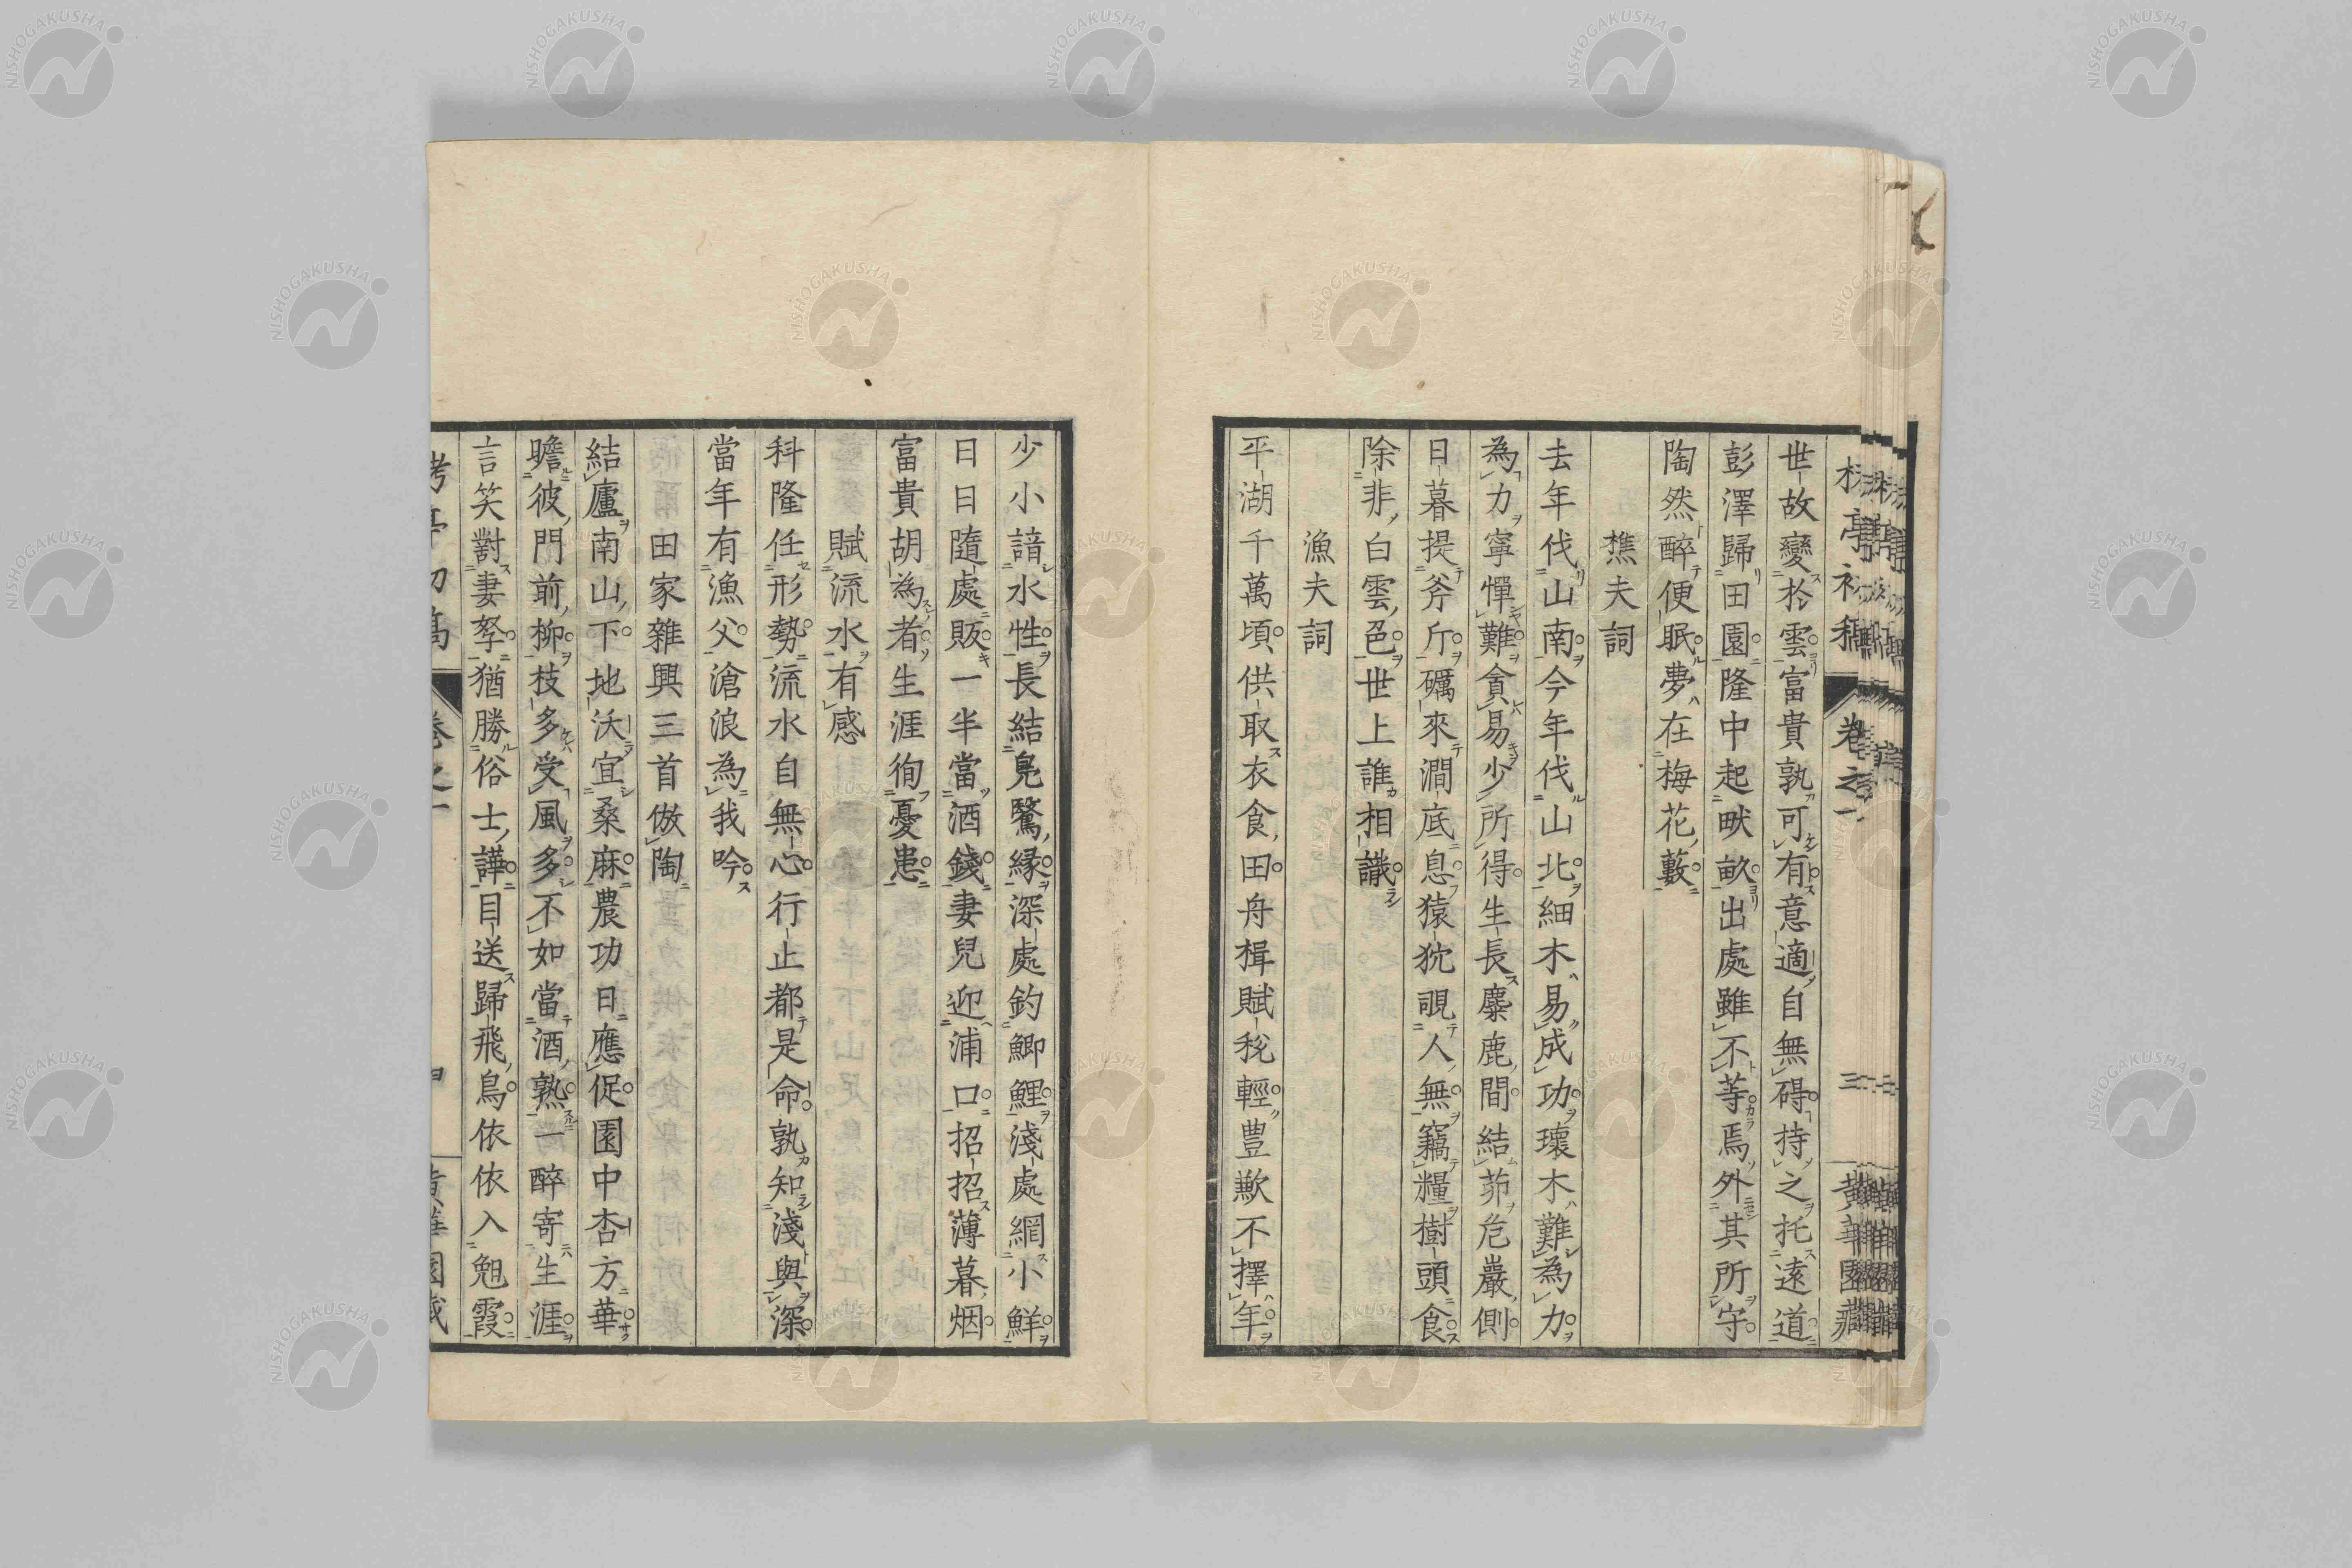 世故變於雲富貴孰可有意適自無碍持之托遠道
彭澤歸田園隆中起畎畝出處雖不等焉外其所守
陶然醉便眠夢在梅花藪
樵夫詞
去年伐山南今年伐山北細木易成功瓌木難為力
為力寧憚難貪易少所得生長麋鹿間結茆危巖側
日暮提斧斤礪來澗底息猿狖覘人無竊糧樹頭食
除非白雲邑世上誰相識
漁夫詞
平湖千萬頃供取衣食田舟楫賦稅輕豊歉不擇年
少小諳水性長結鳧鷖緣深處釣鯽鯉淺處網小鮮
日日隨處販一半當酒錢妻兒迎浦口招招薄暮烟
富貴胡為者生涯徇憂患
賦流水有感
科隆任形勢流水自無心行止都是命孰知淺與深
當年有漁父滄浪為我吟
田家雜興三首倣陶
結廬南山下地沃宜桑麻農功日應促園中杏方華
瞻彼門前柳枝多受風多不如當酒熟一醉寄生涯
言笑對妻孥猶勝俗士譁目送歸飛鳥依依入晚霞
卷之一
NISHOGAKUSHA